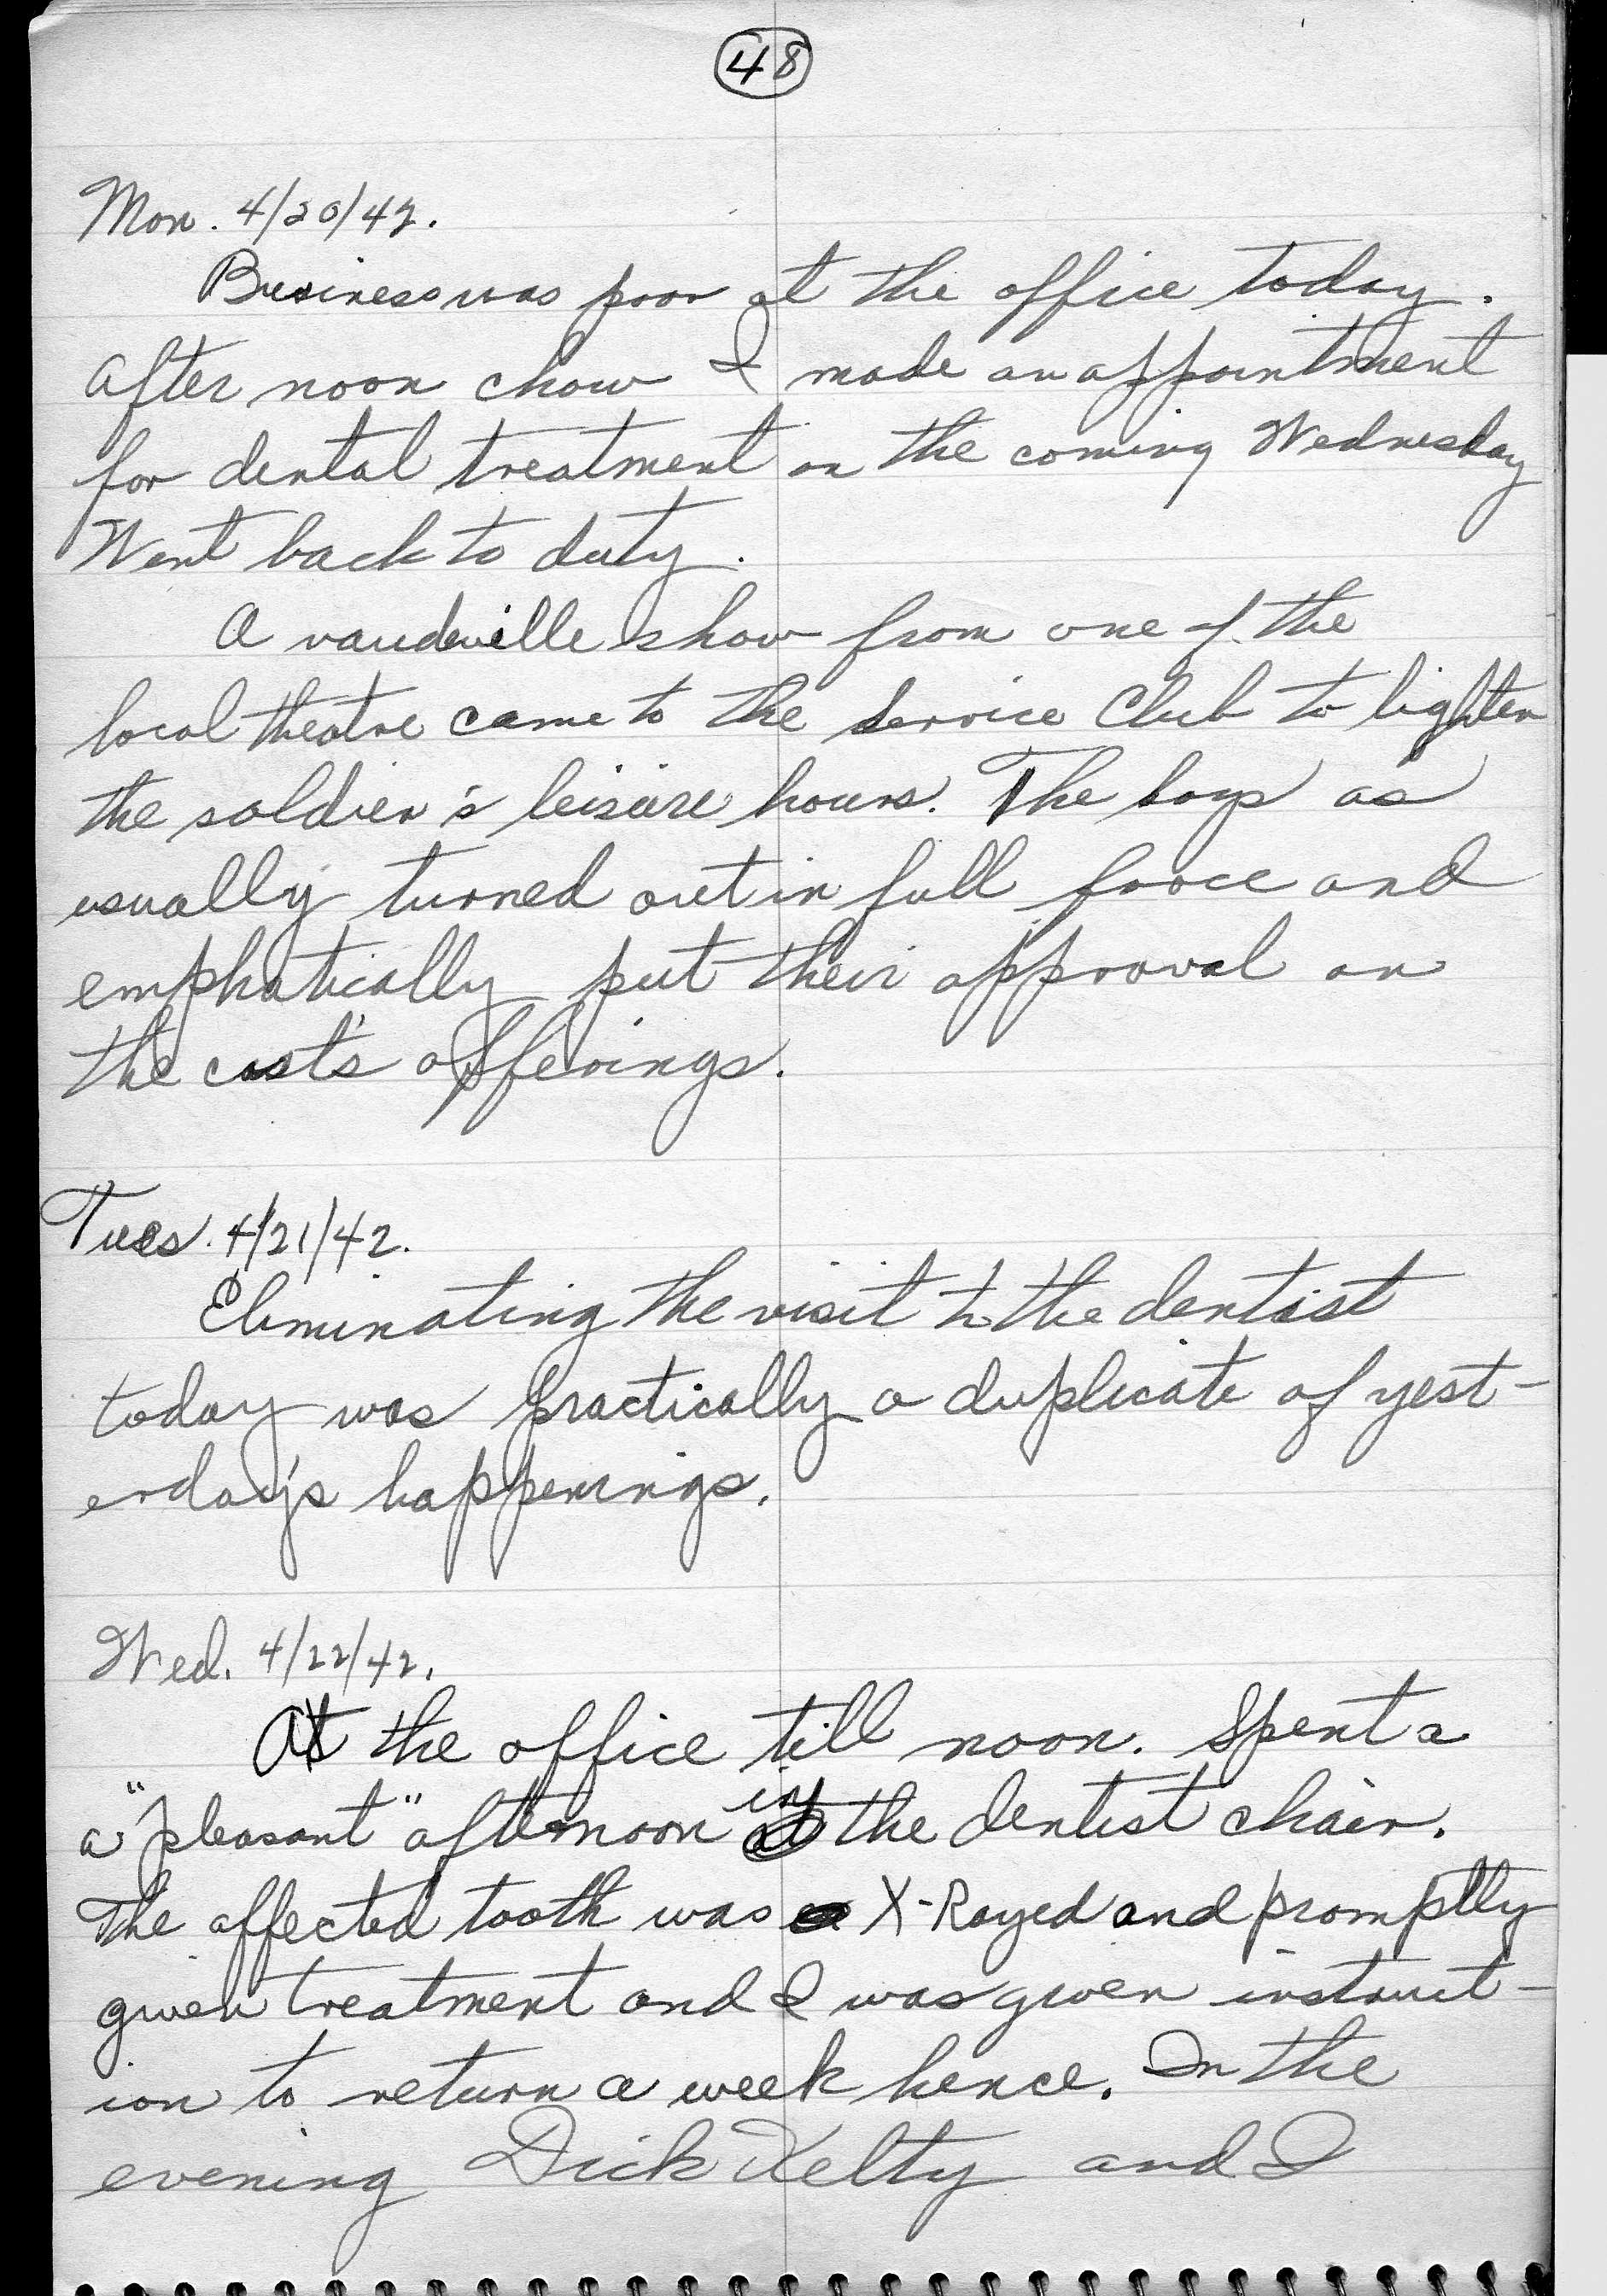 48
Mon. 4/20/42.
Business was poor at the office today.
After noon chow I made an appointment
for dental treatment on the coming Wednesday
Went back to duty.
A vaudeville show from one of the
local theatre came to the Service Club to lighten
the soldier's leisure hours. The boys as
usually turned out in full force and
emphatically put their approval on
the cast's offerings.
Tues. 4/21/42.
Eliminating the visit to the dentist
today was practically a duplicate of yest-
erday's happenings.
Wed. 4/22/42.
At the office till noon. Spent a
a "pleasant" afternoon in the dentist chair.
The affected tooth was X-Rayed and promptly
given treatment and I was given instruct-
ion to return a week hence. In the
evening Dick Kelty and I